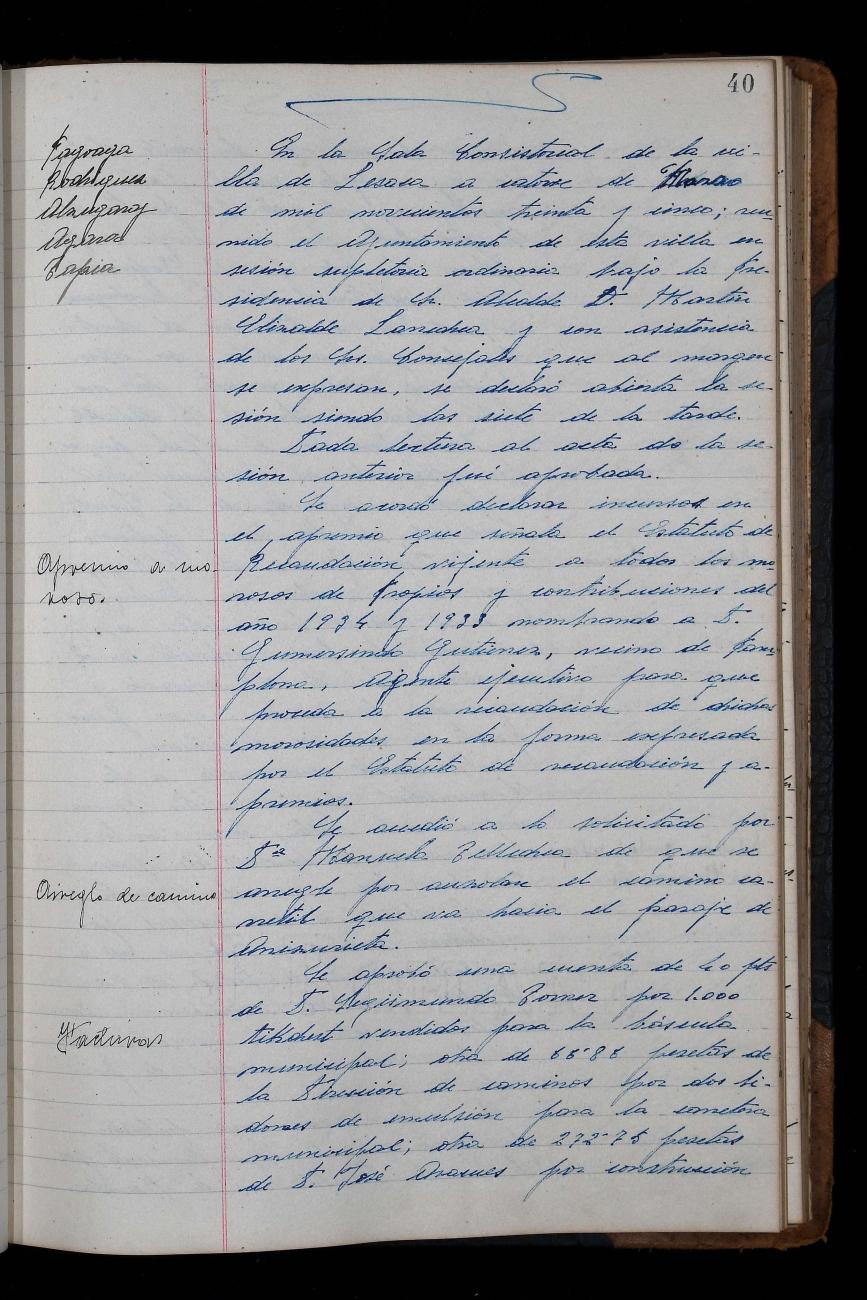 40
Fagoaga
Rodriguez
Alzugaray
Tapia
En la Sala Consistorial de la vi-
lla de Lesaca a catorce de Marzo
de mil novecientos treinta y cinco; reu-
nido el Ayuntamiento de esta villa en
sesión supletoria ordinaria bajo la pre-
sidencia de Sr. Alcalde D. Martín
Elizalde Lanechea y con asistencia
de los Srs. Consejales que al margen
se expresan, se declaró abierta la se-
sión siendo las siete de la tarde.
Dada lectura al acta de la se-
sión anterior fué aprobada.
Se acordó declarar incursos en
el apremio que señala el Estatuto de
Apremio a mo-
rosos.
Recaudación vigente a todos los mo
rosos de propios y contribuciones del
año 1934 y 1933 nombrando a D.
Gumersindo Gutierrez, vecino de Pam
plona, Agente ejecutivo para que
proceda a la recaudación de dichas
morosidades en la forma expresada
por el Estatuto de recaudación y a-
premios.
Se accedió a lo solicitado por
Dª Manuela Tellechea de que se
Arreglo de camino
arregle por auzolan el camino ca-
rretil que va hacia el paraje de
Se aprobó una cuenta de 40 pts
de D. Segismundo Torner por 1.000
tikchest vendidos para la báscula
municipal; otra de 66'88 pesetas de
la Dirección de caminos por dos bi-
dones de emulsión para la carretera
municipal; otra de 272'75 pesetas
de D. José por construcción